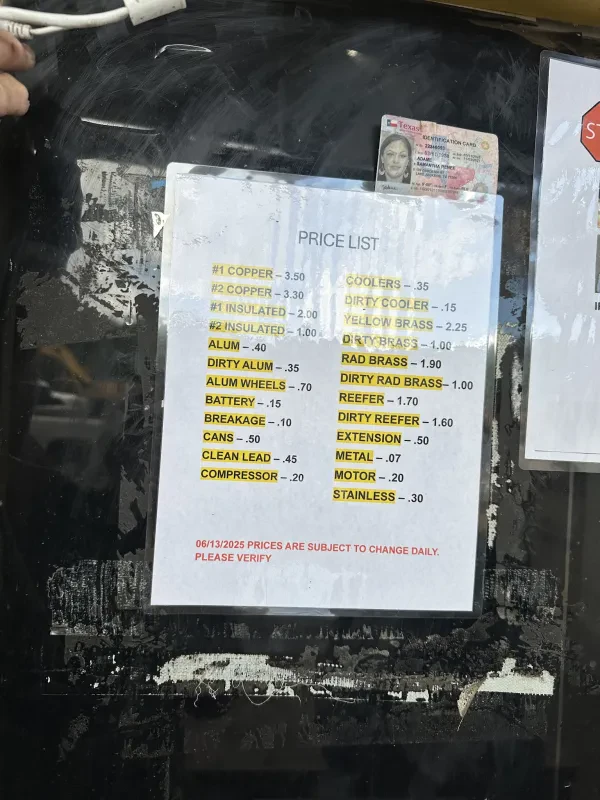 Texas
IDENTIFICATION CARD
PRICE LIST
#1 COPPER – 3.50
#2 COPPER – 3.30
#1 INSULATED – 2.00
#2 INSULATED – 1.00
ALUM – .40
DIRTY ALUM – .35
ALUM WHEELS – .70
BATTERY – .15
BREAKAGE – .10
CANS – .50
CLEAN LEAD – .45
COMPRESSOR – .20
COOLERS – .35
DIRTY COOLER – .15
YELLOW BRASS – 2.25
DIRTY BRASS – 1.00
RAD BRASS – 1.90
DIRTY RAD BRASS– 1.00
REEFER – 1.70
DIRTY REEFER – 1.60
EXTENSION – .50
METAL – .07
MOTOR – .20
STAINLESS – .30
06/13/2025 PRICES ARE SUBJECT TO CHANGE DAILY.
PLEASE VERIFY
ST